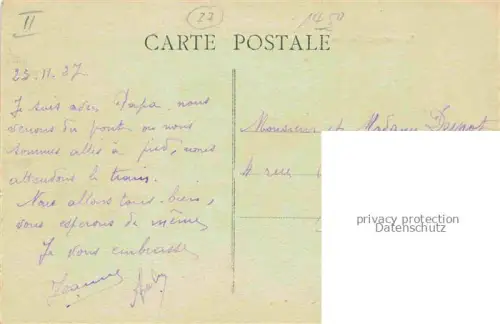 II
77
1450
CARTE POSTALE
25.11.27
Je suis avec Papa nous
venons du pont ou nous
sommes allés à pied, nous
attendons le train.
Nous allons tous bien,
vous esperons de même
Je vous embrasse
Jeanne
Monsieur et Madame
4 rue
privacy protection
Datenschutz